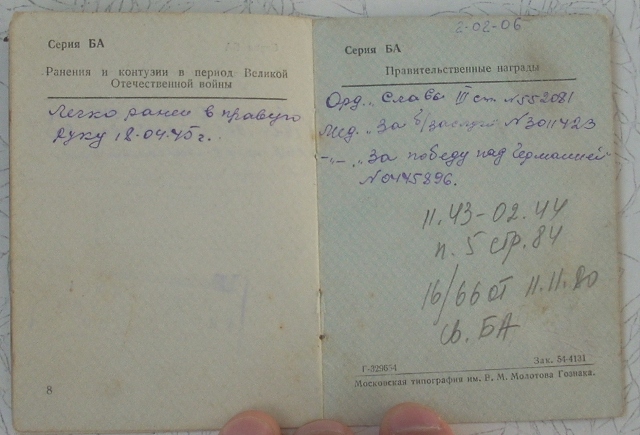 Серия БА
Ранения и контузии в период Великой
Отечественной войны
Легко ранен в правую
руку 18.04.45г.
8
2-02-06
Серия БА
Правительственные награды
Орд. „Славы III ст. N552081
Мед. „За б/заслуги" N3011723
-"- „За победу над Германией"
N0475896.
11.43-02.44
п. 5 стр. 84
16/66 от 11.11.80
св. БА
Г-329654
Зак. 54-4131
Московская типография им. В. М. Молотова Гознака.